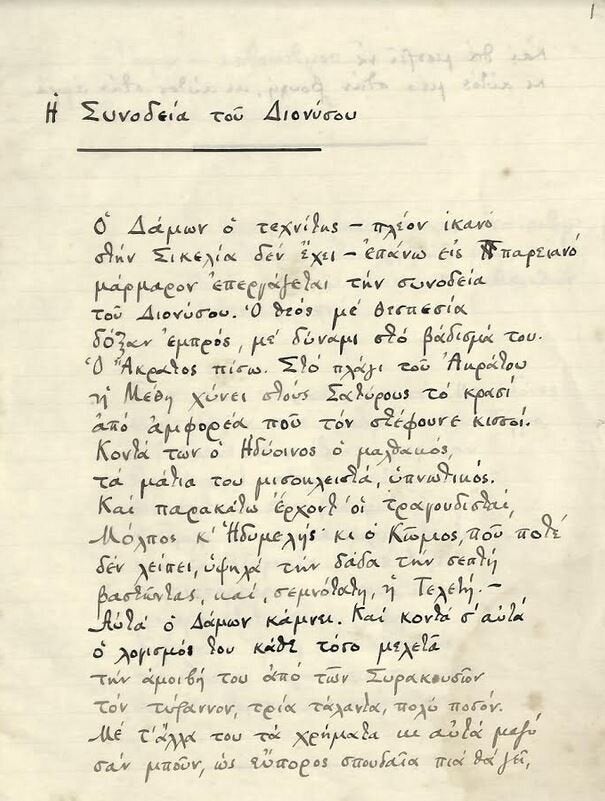 1
Ἡ Συνοδεία τοῦ Διονύσου
Ὁ Δάμων ὁ τεχνίτης – πλέον ἱκανὸ
στὴν Σικελία δὲν ἔχει – ἐπάνω εἰς παρειανὸ
μάρμαρον ἐπεργάζεται τὴν συνοδεία
τοῦ Διονύσου. Ὁ θεὸς μὲ θεσπεσία
δόξαν ἐμπρός, μὲ δύναμι στὸ βάδισμά του.
Ὁ Ἄκρατος πίσω. Στὸ πλάγι τοῦ Ἀκράτου
ἡ Μέθη χύνει στοὺς Σατύρους τὸ κρασὶ
ἀπὸ ἀμφορέα ποῦ τὸν στέφουνε κισσοί.
Κοντά των ὁ Ἡδύοινος ὁ μαλθακός,
τὰ μάτια του μισοκλειστά, ὑπνωτικός.
Καὶ παρακάτω ἔρχοντ' οἱ τραγουδισταὶ
Μόλπος κ' Ἡδυμελής κι ὁ Κῶμος, ποῦ ποτὲ
δὲν λείπει, ὑψηλὰ τὴν δάδα τὴν σεπτὴ
βαστῶντας, καί, σεμνότατη, ἡ Τελετή. –
Αὐτὰ ὁ Δάμων κάμνει. Καὶ κοντὰ σ' αὐτὰ
ὁ λογισμός του κάθε τόσο μελετᾶ
τὴν ἀμοιβή του ἀπὸ τῶν Συρακουσῶν
τὸν τύραννον, τρία τάλαντα, πολὺ ποσόν.
Μὲ τ' ἄλλα του τὰ χρήματα κι αὐτὰ μαζὺ
σὰν μποῦν, ὡς εὔπορος σπουδαῖα πιὰ θὰ ζεῖ,